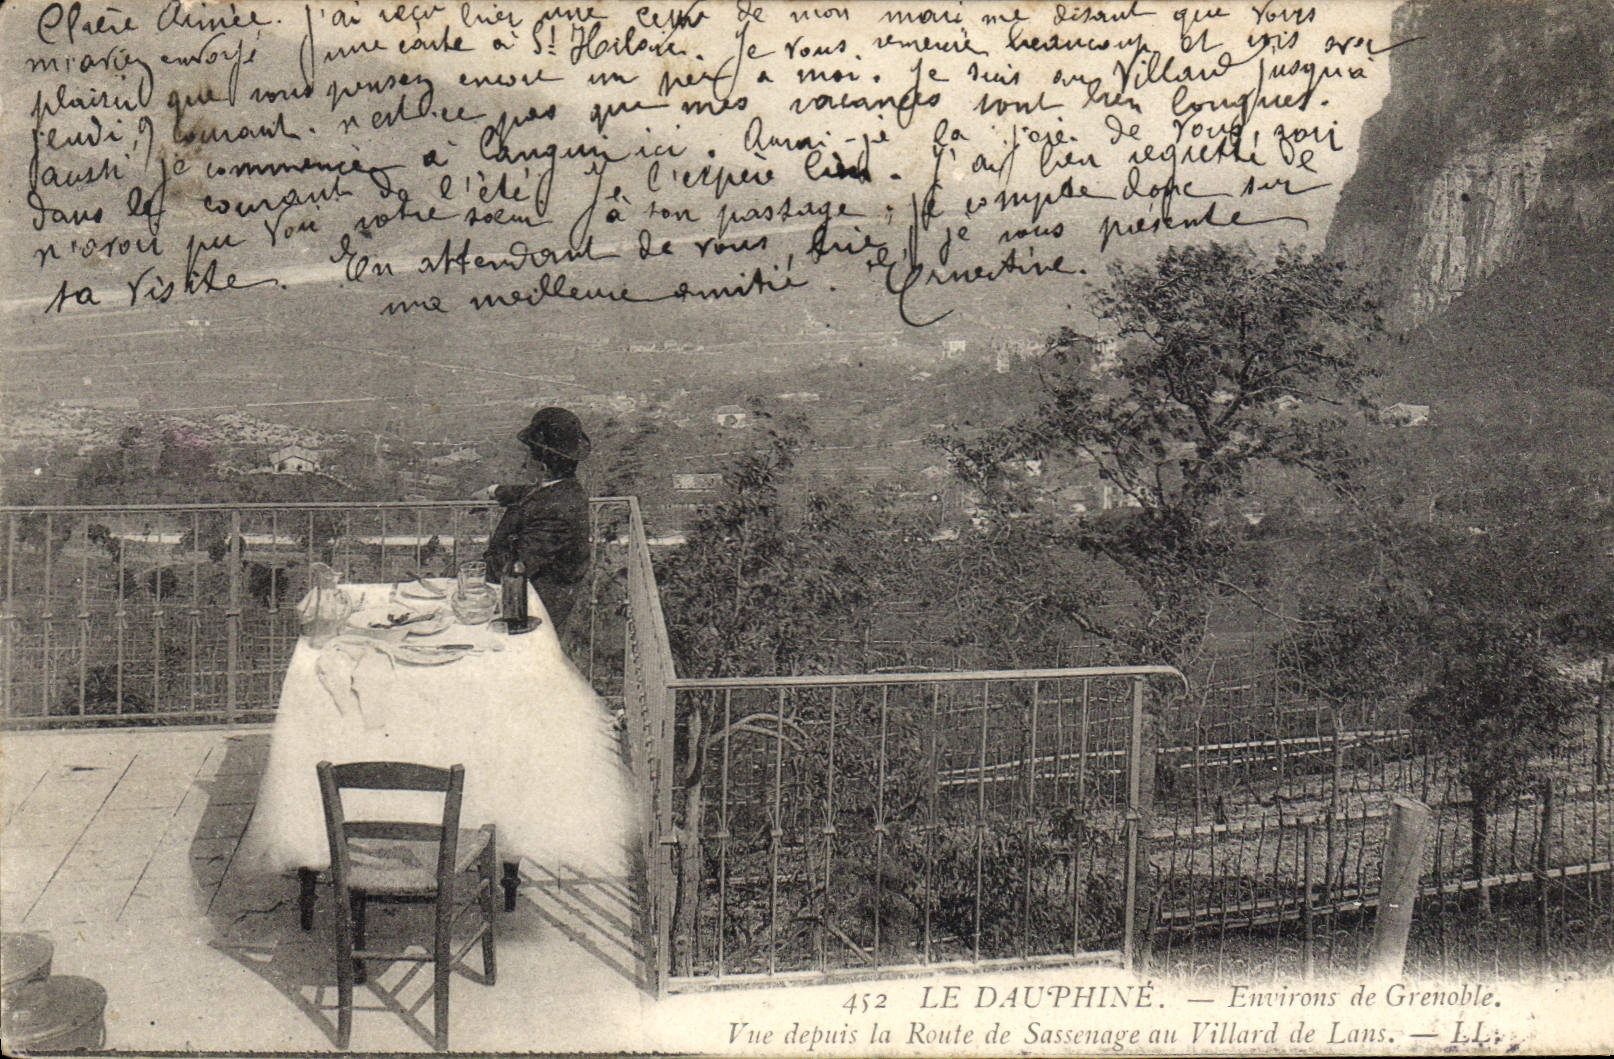 Chère Aimée. J'ai reçu hier une lettre de mon mari me disant que vous
m'aviez envoyé une carte à St Hilaire. Je vous remercie beaucoup et vois avec
plaisir que vous pensez encore un peu à moi. Je suis au Villard jusqu'à
jeudi, 9 courant. n'est-ce pas que mes vacances sont bien longues.
aussi je commence à languir ici. Aurai-je la joie de vous voir
dans le courant de l'été Je l'espère bien. J'ai bien regretté de
n'avoir pu voir votre sœur à son passage; je compte donc sur
sa visite. En attendant de vous lire, je vous présente
ma meilleure amitié. Ernestine.
452 LE DAUPHINÉ. — Environs de Grenoble.
Vue depuis la Route de Sassenage au Villard de Lans. — LL.